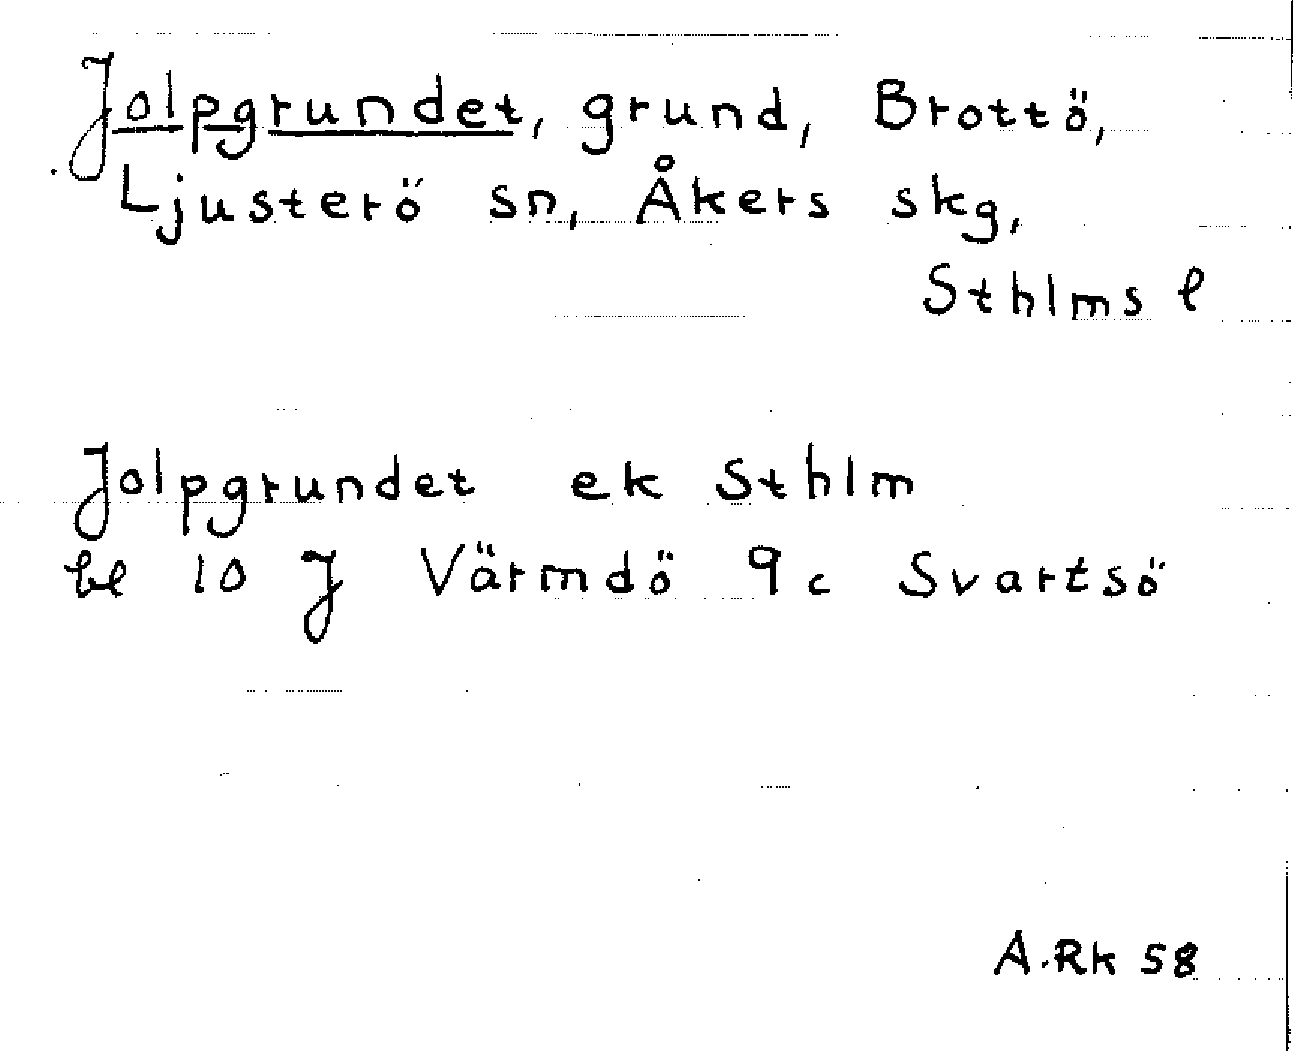 Jolpgrundet, grund, Brottö,
Ljusterö sn, Åkers skg,
Sthlms l
Jolpgrundet ek Sthlm
bl 10 J Värmdö 9c Svartsö
A.Rk 58